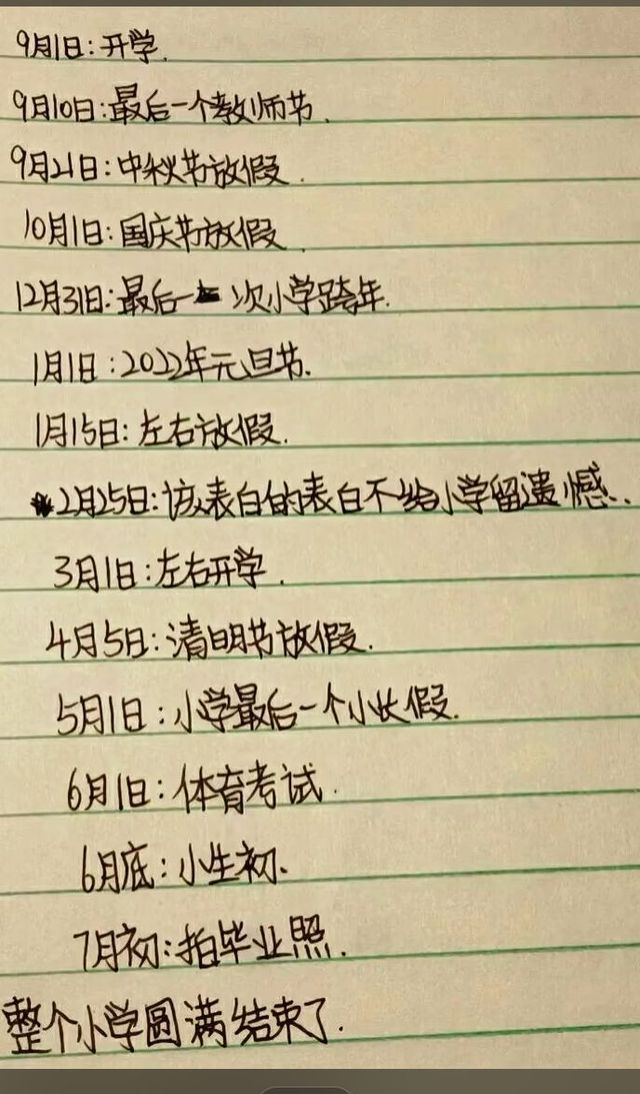 9月1日:开学.
9月10日:最后一个教师节.
9月21日:中秋节放假.
10月1日:国庆节放假.
12月31日:最后一次小学跨年.
1月1日:2022年元旦节.
1月15日:左右放假.
2月25日:该表白的表白不给小学留遗憾.
3月1日:左右开学.
4月5日:清明节放假.
5月1日:小学最后一个小长假.
6月1日:体育考试.
6月底:小生初.
7月初:拍毕业照.
整个小学圆满结束了.